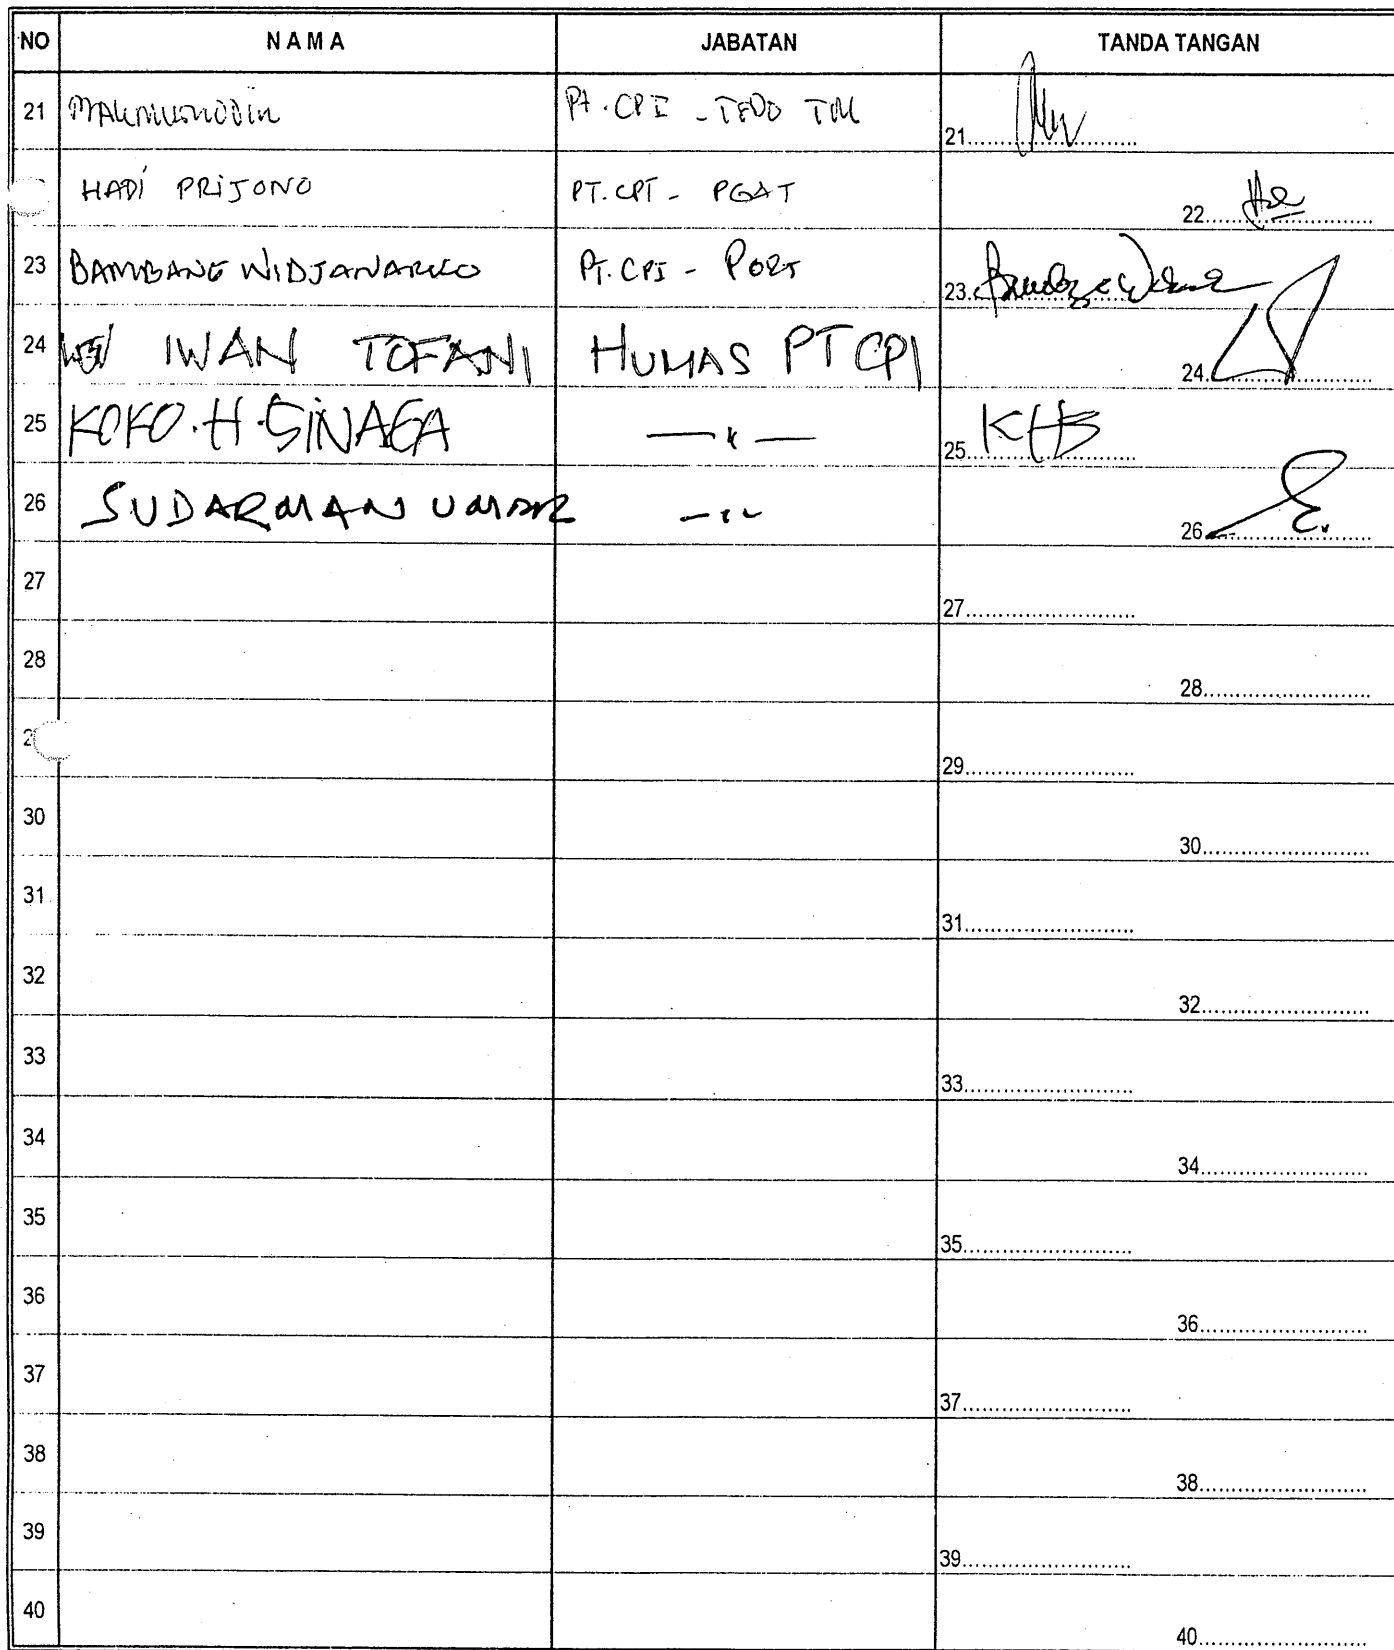 NO NAMA JABATAN TANDA TANGAN
21 PT.CPI - 21..........................
HADI PRIJONO PT.CPI - PGAT 22..........................
23 BAMBANG WIDJANARKO PT.CPI - PORT 23..........................
24 IWAN TOFANI HUMAS PT CPI 24..........................
25 KOKO.H.SINAGA — " — 25. KHS
26 SUDARMAN UMAR - " - 26..........................
27 27..........................
28 28..........................
2 29..........................
30 30..........................
31 31..........................
32 32..........................
33 33..........................
34 34..........................
35 35..........................
36 36..........................
37 37..........................
38 38..........................
39 39..........................
40 40..........................